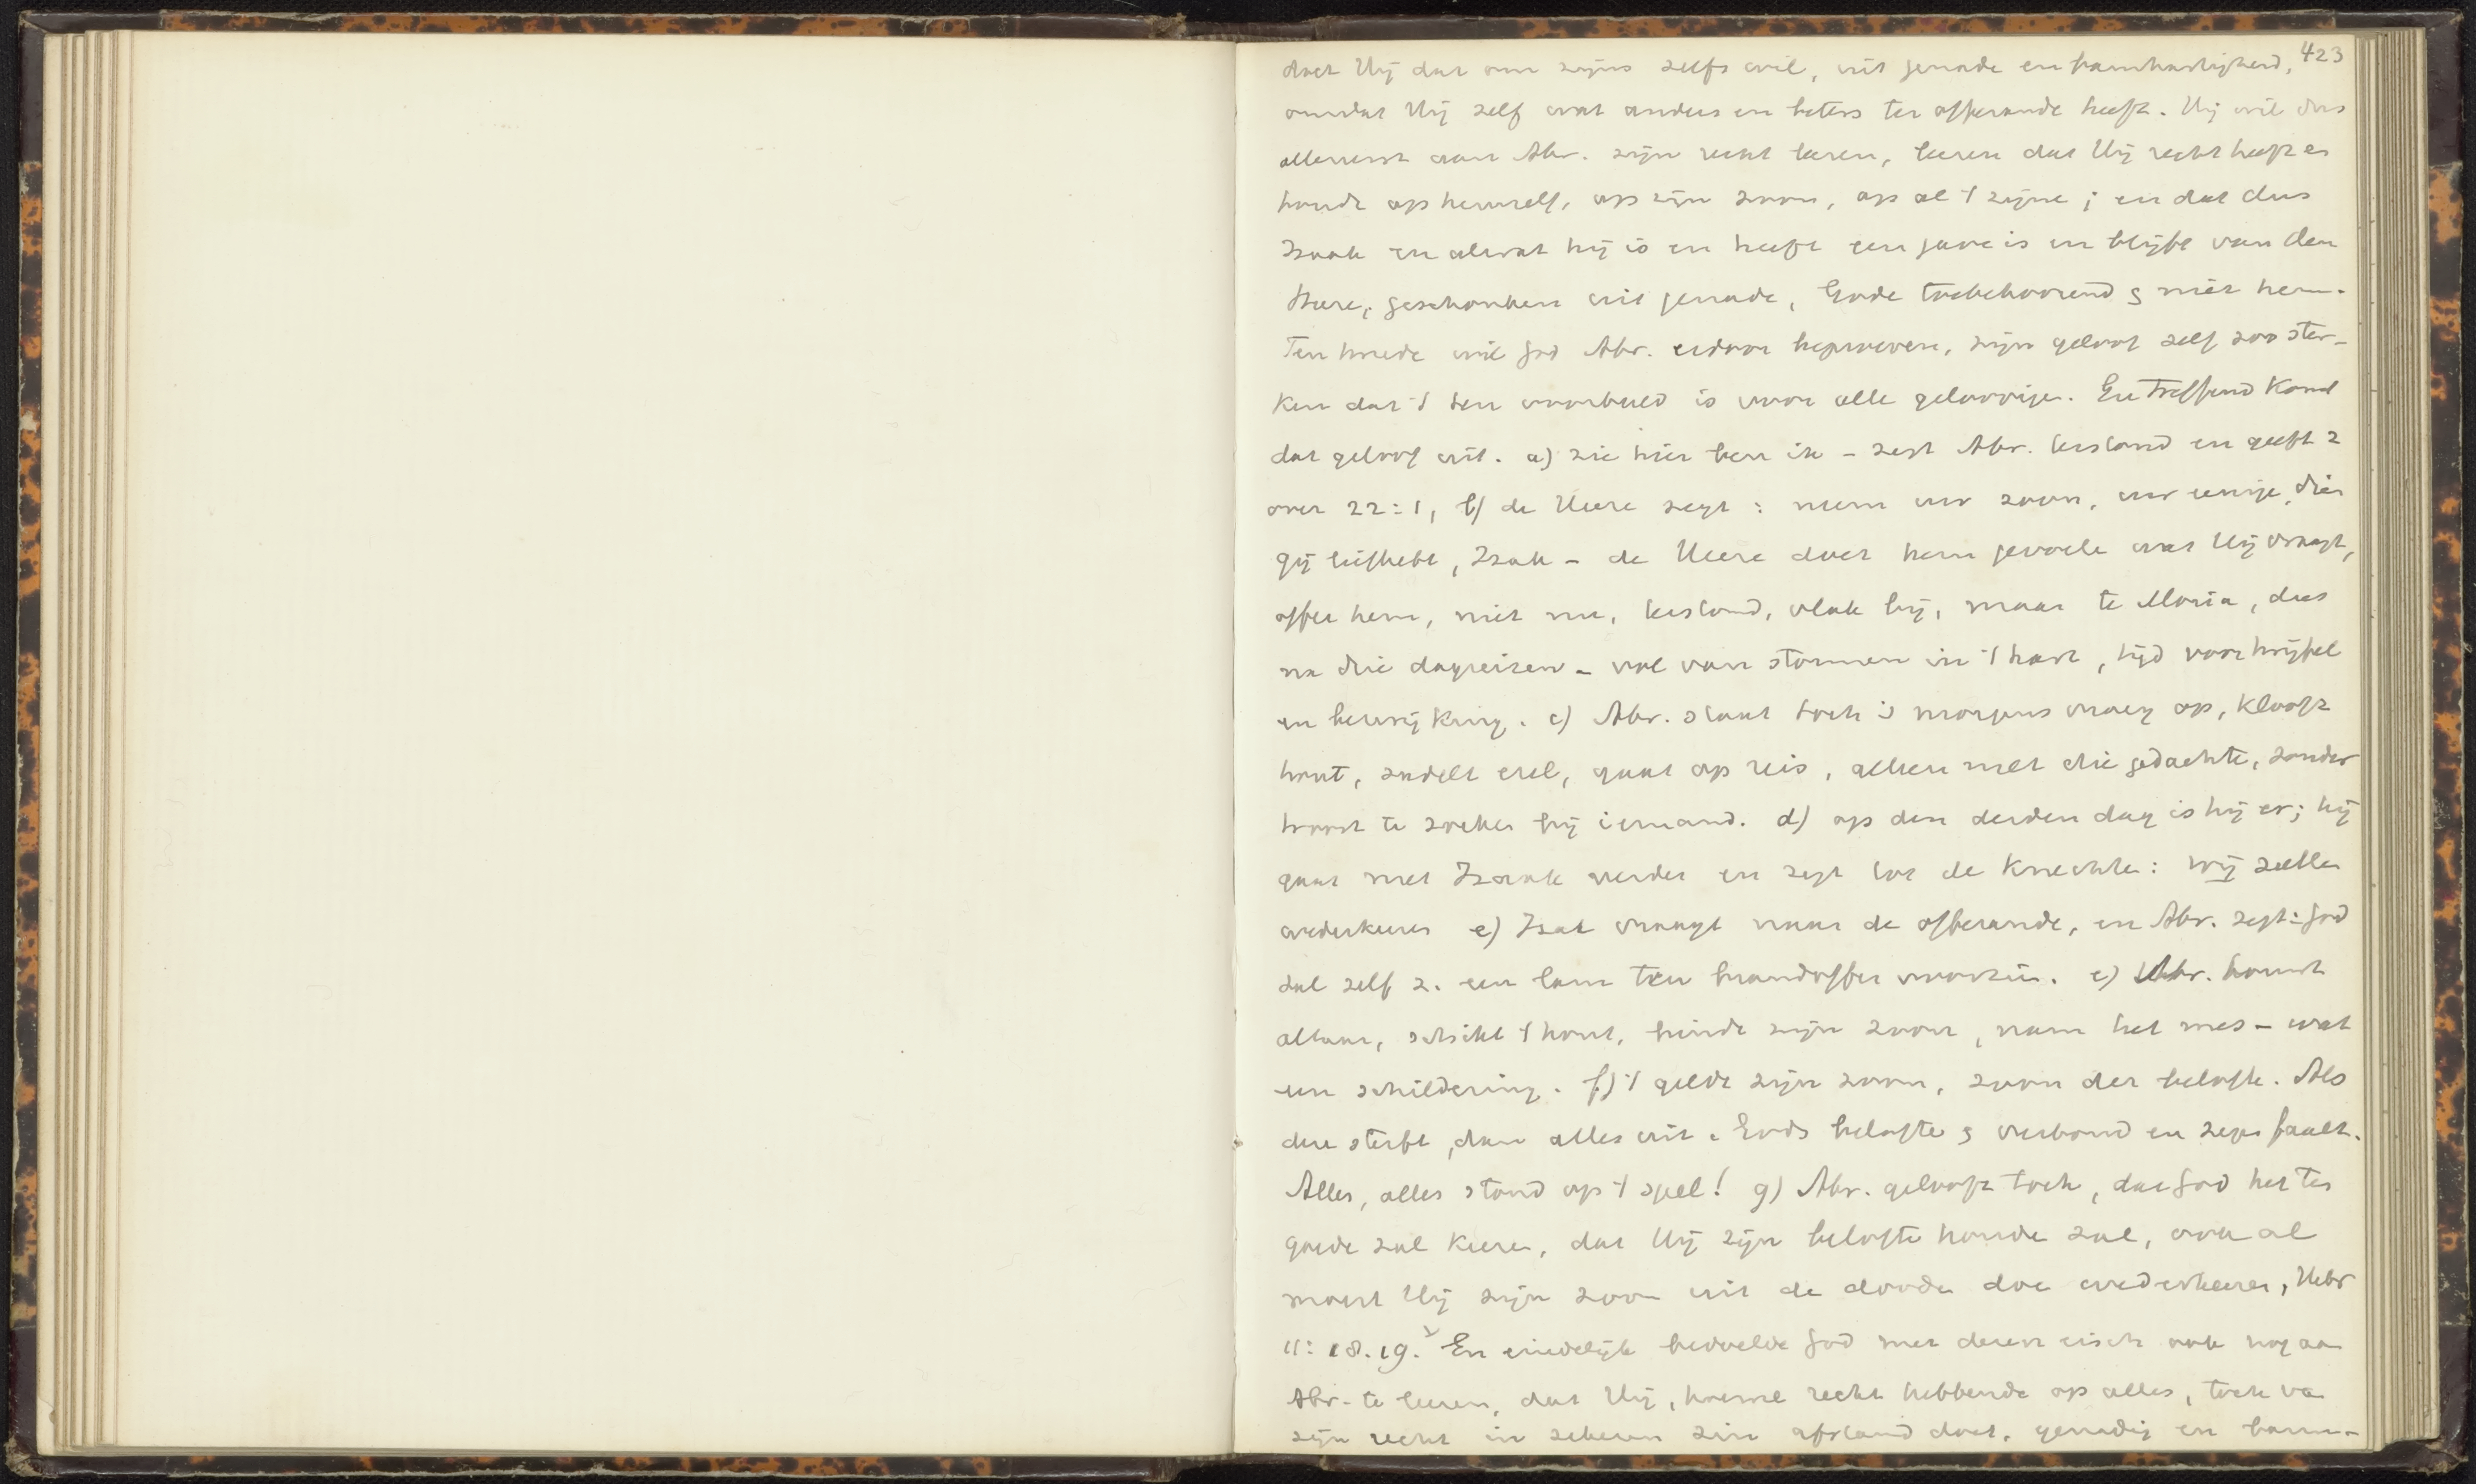 423
doet Hij dat om zijns zelfs wil, uit genade en barmhartigheid,
omdat Hij zelf wat anders en beters ter offerande heeft. Hij wil dus
allereerst aan Abr. zijn recht leeren, leeren dat Hij recht heeft en
houdt op hemzelf, op zijn zoon, op al 't zijne; en dat dus
Izaak en alwat hij is en heeft een gave is en blijft van den
Heere, geschonken uit genade, Gode toebehoorend & niet hem.
Ten tweede wil God Abr. erdoor beproeven, zijn geloof zelf zoo ster-
ken dat 't een voorbeeld is voor alle geloovigen. En treffend komt
dat geloof uit. a) zie hier ben ik - zegt Abr. terstond en geeft z
over 22:1, b) de Heere zegt: neem uw zoon, uw eenige, dien
gij liefhebt, Izak - de Heere doet hem gevoele wat Hij vraagt,
offer hem, niet nu, terstond, vlak bij, maar te Moria, dus
na drie dagreizen - vol van stormen in 't hart, tijd voor twijfel
en bezwijking. c) Abr. staat toch 's morgens vroeg op, klooft
hout, zadelt ezel, gaat op reis, alleen met die gedachte, zonder
troost te zoeken bij iemand. d) op den derden dag is hij er; hij
gaat met Izaak verder en zegt tot de knechte: wij zulle
wederkeeren e) Isak vraagt naar de offerande, en Abr. zegt: God
zal zelf z. een lam ten brandoffer voorzien. e) Abr. bouwt
altaar, schikt 't hout, bindt zijn zoon, nam het mes - wat
een schildering. f) 't geldt zijn zoon, zoon der belofte. Als
die sterft, dan alles uit. Gods belofte & verbond en zegen faalt.
Alles, alles stond op 't spel! g) Abr. gelooft toch, dat God het ten
goede zal keeren, dat Hij zijn belofte houde zal, ook al
moest Hij zijn zoon uit de doode doe wederkeeren, Hebr
11:18.19. En eindelijk bedoelde God met dezen eisch ook nog aan
Abr. te leeren, dat Hij, hoewel recht hebbende op alles, toch va
zijn recht in zekeren zin afstand doet, genadig en barm-